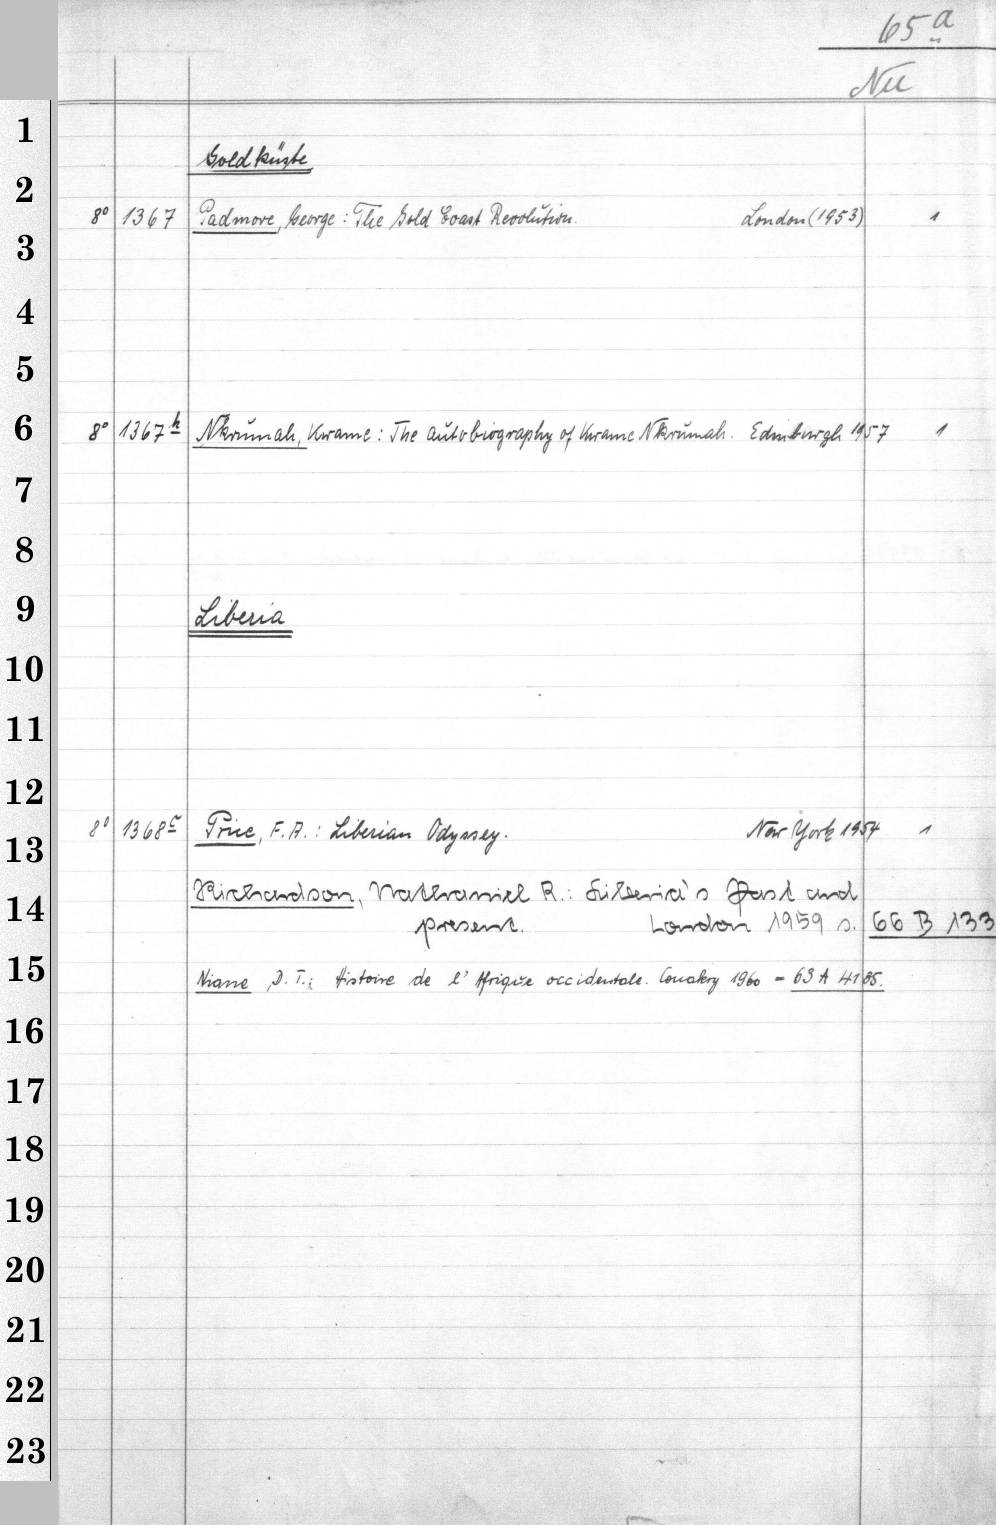 65 a
Nu
1
Goldküste
2
8° 1367 Padmore, George: The Gold Coast Revolution. London (1953) 1
3
4
5
6 8° 1367 h Nkrumah, Kwame: The autobiography of Kwame Nkrumah. Edinburgh 1957 1
7
8
9 Liberia
10
11
12
8° 1368 c Price, F. A.: Liberian Odyssey. New York 1954 1
13
Richardson, Nathaniel R.: Liberia's Past and
14 present. London 1959 s. 66 B 133
15 Niane, D. T.: Histoire de l'Afrique occidentale. Conakry 1960 = 63 A 4185.
16
17
18
19
20
21
22
23